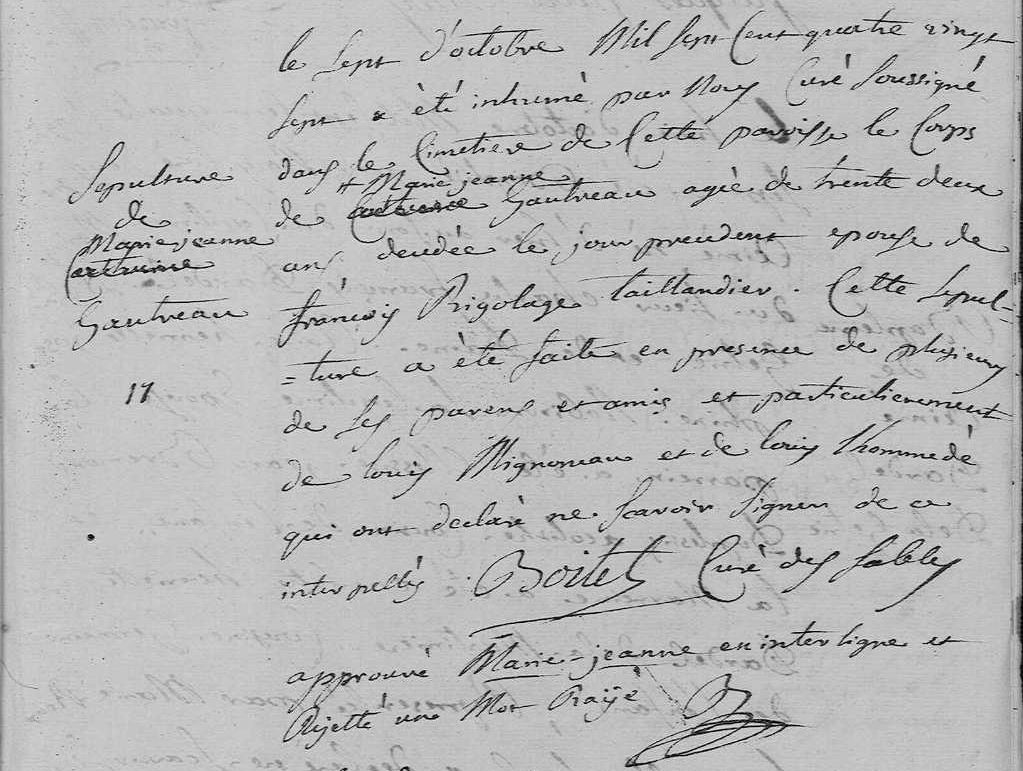 Sepulture
de
Marie jeanne
Catherine
Gautreau
17
le sept d'octobre Mil sept Cent quatre vingt
sept a été inhumé par Nous Curé soussigné
dans le Cimetiere de Cette paroisse le Corps
+ Marie jeanne
de Catherine Gautreau agée de trente deux
ans decedée le jour precedent epouse de
françois Rigolage taillandier. Cette sepul=
=ture a été faite en presence de plusieurs
de ses parens et amis et particulierement
de louis Mignonneau et de louis l'hommedé
qui ont declaré ne scavoir signer de ce
interpellés. Boitel Curé des sables
approuvé Marie-jeanne en interligne et
Rejetté un Mot Rayé